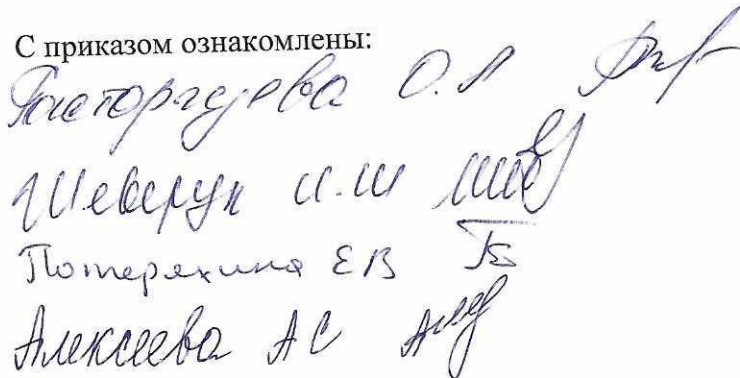 С приказом ознакомлены:
Расторгуева О.Л
Шеверук И.Ш
Потеряхина ЕВ
Алексеева АС